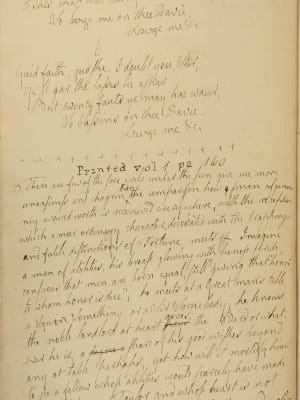 To lieze me on thee Davie.
Lieuze me &c
6
Guid faith, quo she, I doubt you, Stir,
Ye'll gar the lasses lie aspar
But twenty fauts ye may hae waur,
So blessins on thee Davie.
Lieuze me &c
Printed vol 1 pe 160
There are few of the sore evils under the sun give me more
uneasiness and chagrin than the comparison how a man of genius
nay avowed worth is received everywhere, with the reception
which a meer ordinary character, decorated with the trappings
and futile distinctions of Fortune, meets. Imagine
a man of abilities, his breast glowing with honest pride
conscious that men are born equal, still giving that honor
to whom honor is due; he meets at a Great man's table
a Squire Something, or a Sir Somebody; he knows
the noble landlord at heart gives the Bard or what
ever he is, a share of his good wishes beyond
any at table perhaps, yet how will it mortify him
to see a fellow whose abilities would scarcely have made
Taylor and whose heart is not